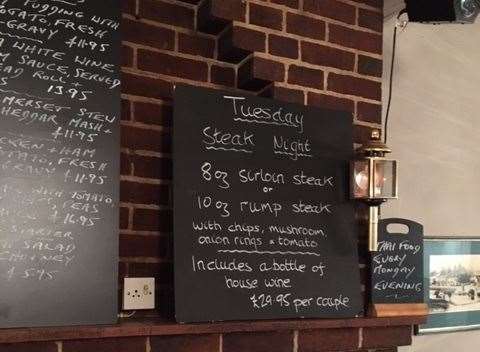 PUDDING WITH
POTATO, FRESH
GRAVY £11.95
WHITE WINE
SAUCE, SERVED
ROLL +
13.95
SOMERSET STEW
CHEDDAR MASH +
£11.95
CHICKEN + HAM
POTATO, FRESH
GRAVY £11.95
WITH TOMATO,
PEAS
£16.95
STARTER
SALAD
CHUTNEY
£5.95
Tuesday
Steak Night
8oz sirloin steak
or
10oz rump steak
with chips, mushroom,
onion rings + tomato
Includes a bottle of
house wine
£29.95 per couple
THAI FOOD
EVERY
MONDAY
EVENING